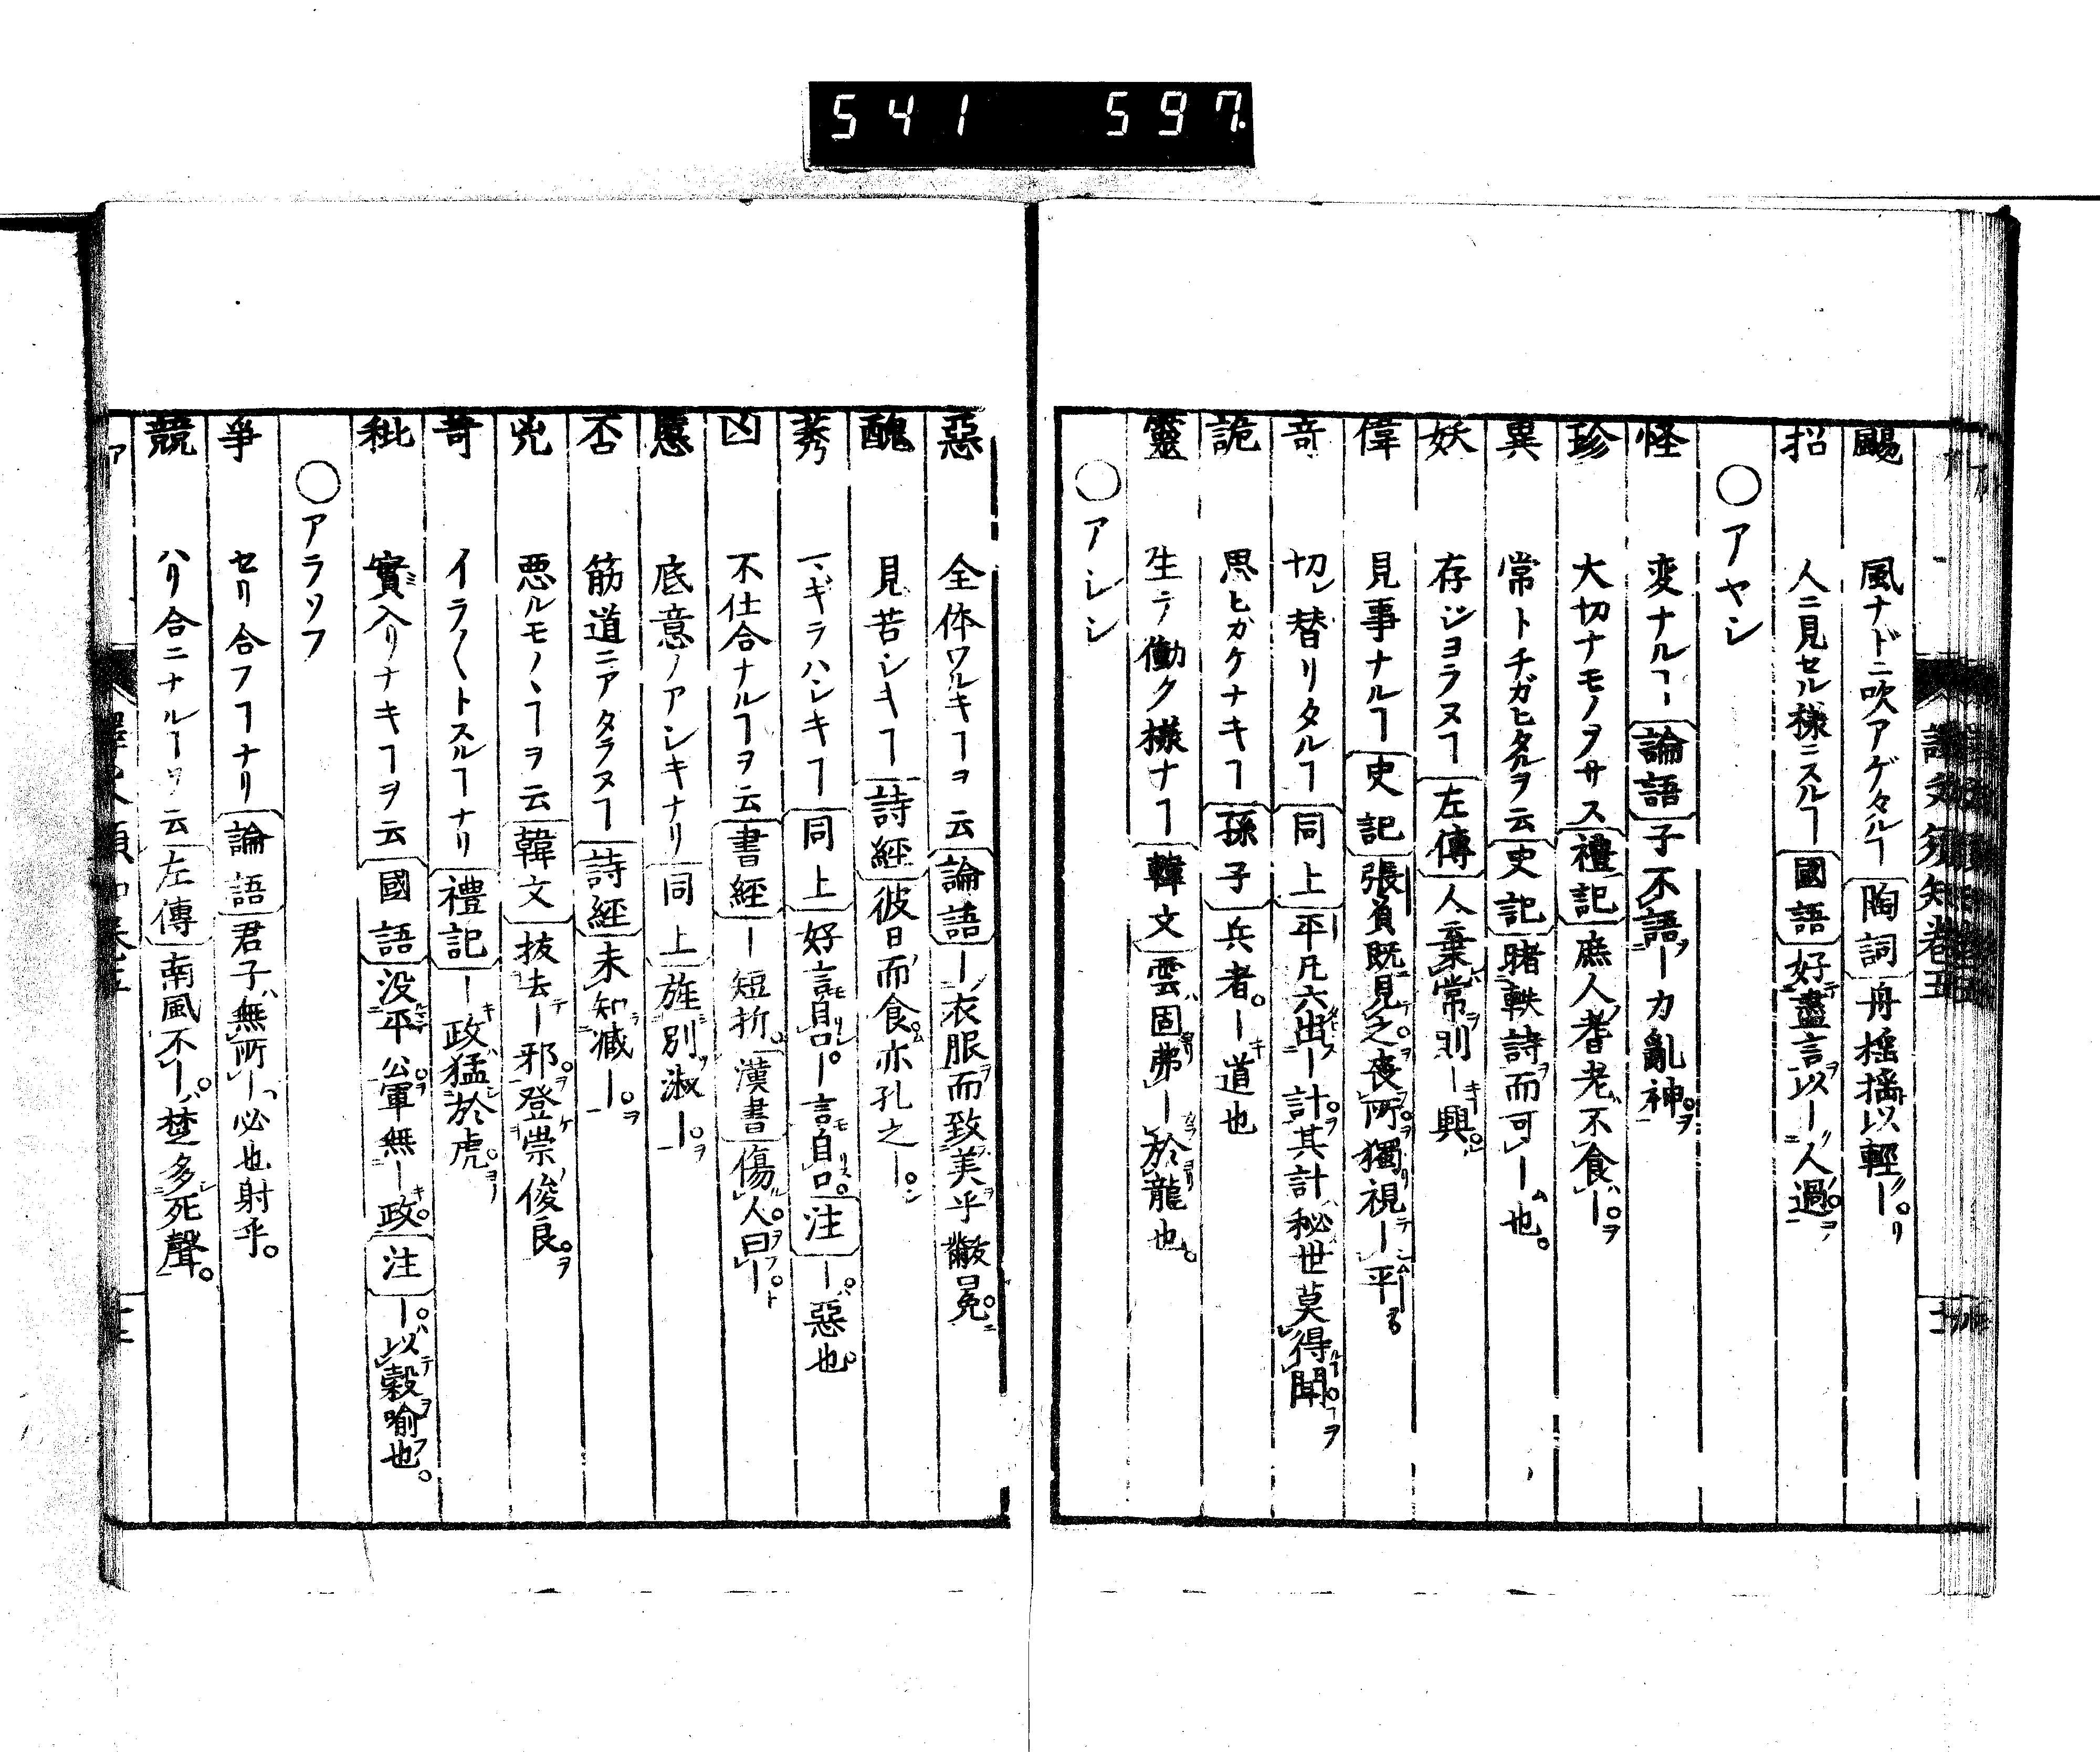 541 597
譯文須知卷五
颺 風ナドニ吹アゲタルヿ 陶詞 舟搖搖以輕ー
招 人ニ見セル様ニスルヿ 國語 好盡言以ー人過
○アヤシ
怪 変ナルヿ 論語 子不語ー力亂神
珍 大切ナモノヲサス 禮記 庶人耆老不食ー
異 常トチガヒタルヲ云 史記 睹軼詩而可ー也
妖 存ジヨラヌヿ 左傳 人棄常則ー興
偉 見事ナルヿ 史記 張負既見之喪所獨視ー平
奇 切レ替リタルヿ 同上 平凡六出ー計其計秘世莫得聞
詭 思ヒカケナキヿ 孫子 兵者ー道也
靈 生テ働ク様ナヿ 韓文 雲固弗ー於龍也
○アシシ
惡 全体ワルキヿヲ云 論語 ー衣服而致美乎黻冕
醜 見苦シキヿ 詩經 彼日而食亦孔之ー
莠 マギラハシキヿ 同上 好言自口ー言自口 注 ー惡也
凶 不仕合ナルヿヲ云 書經 ー短折 漢書 傷人曰ー
慝 底意ノアシキナリ 同上 旌別淑ー
否 筋道ニアタラヌヿ 詩經 未知臧ー
兇 悪ルモノヽヿヲ云 韓文 抜去ー邪登崇俊良
苛 イラ〳〵トスルヿナリ 禮記 ー政猛於虎
秕 實入リナキヿヲ云 國語 没平公軍無ー政 注 ー以穀喻也
○アラソフ
爭 セリ合フヿナリ 論語 君子無所ー必也射乎
競 ハリ合ニナルヿヲ云 左傳 南風不ー楚多死聲